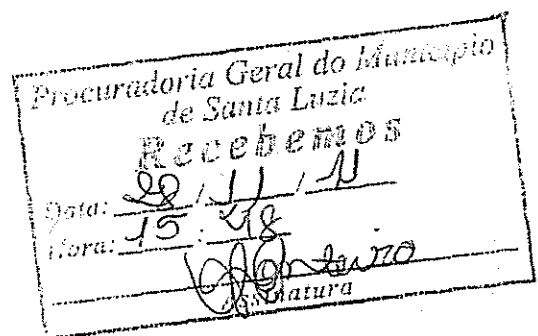 Procuradoria Geral do Município
de Santa Luzia
Recebemos
Data: 28 / 11 / 11
Hora: 15 : 18
Assinatura